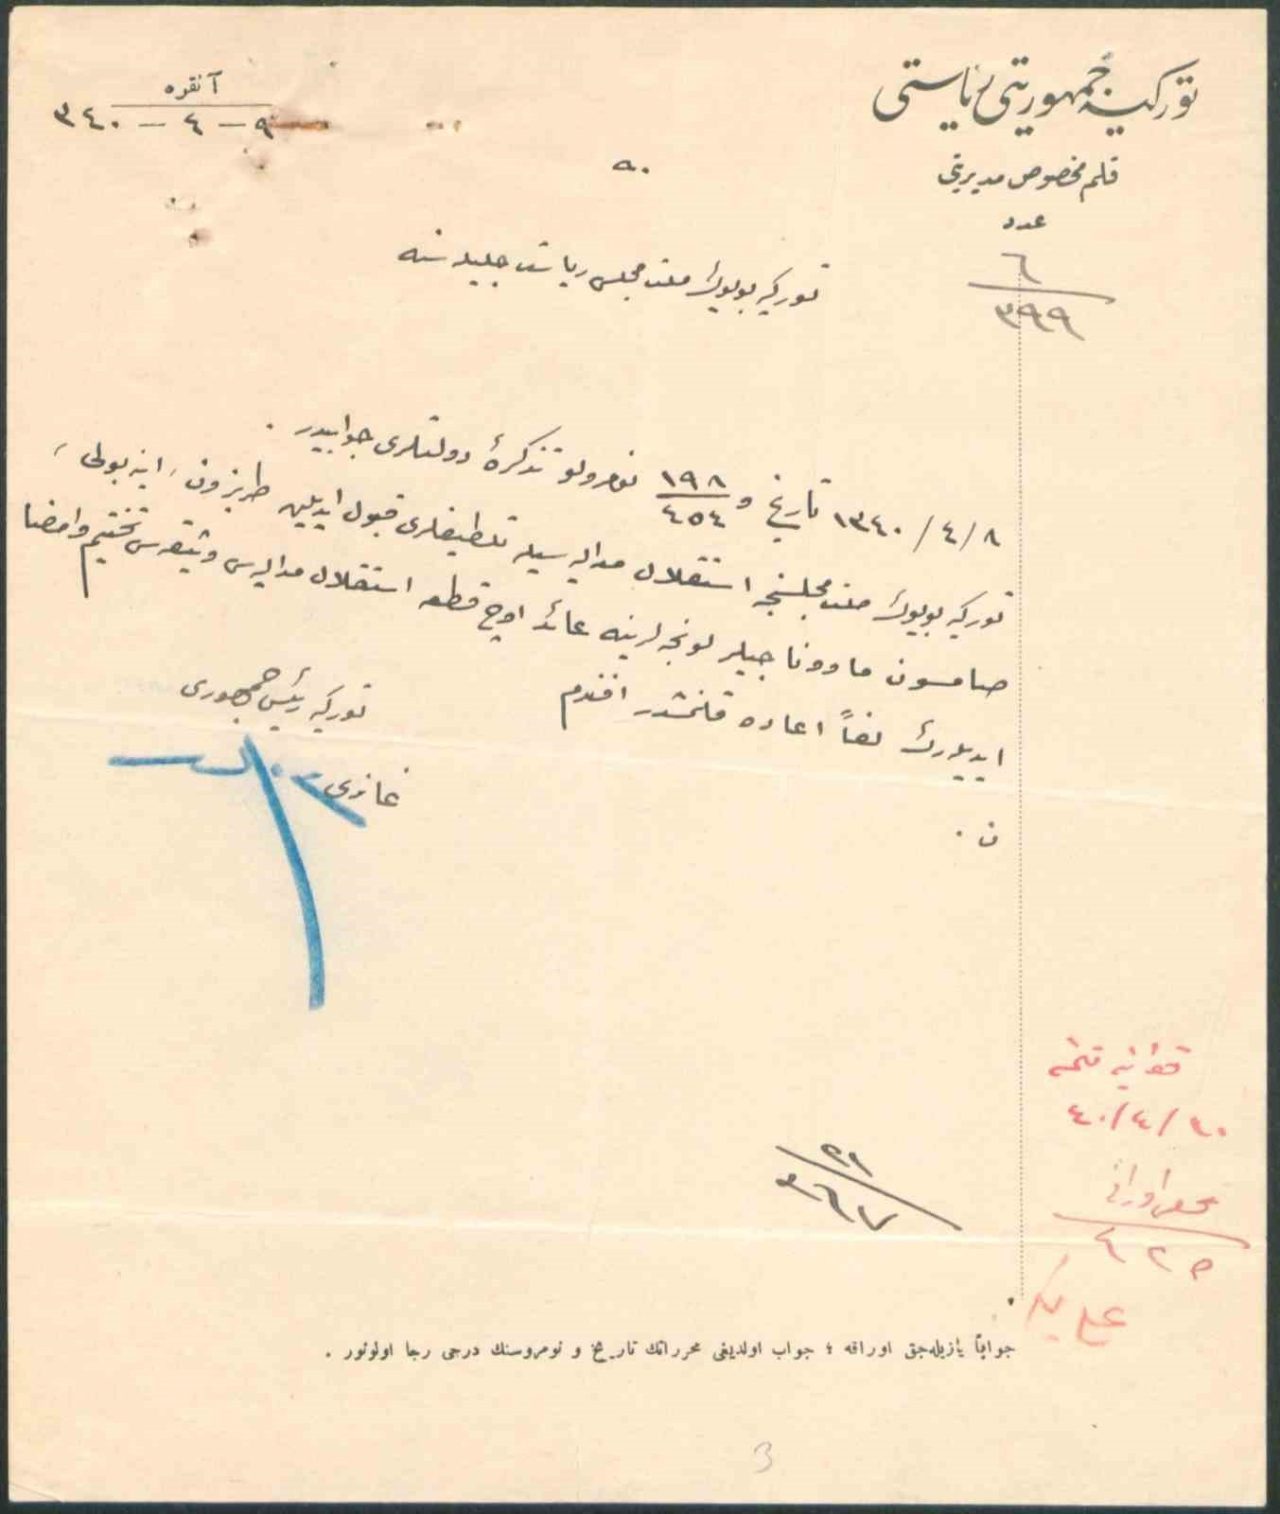 توركيه جمهوريتی رياستی
قلم مخصوص مديريتی
عدد
٦
٣٩٩
آنقره
٩ – ٤ – ٣٤٠
توركيه بويوك ملت مجلسی رياست جليله سنه
٨/٤/١٣٤٠ تاريخ و ١٩٨/٤٥٤ نومرولو تذكرۀ دولتلری جوابيدر .
توركيه بويوك ملت مجلسنجه استقلال مداليه سيله تلطيفلری قبول ايديلن طربزون ، اينه بولی ،
صامسون ماوونا جيلر لونجه لرينه عائد اوچ قطعه استقلال مداليه سی وثيقه سی تختيم وامضا
ايديله رك لفاً اعاده قلنمشدر افندم
ن .
توركيه رئيس جمهوری
غازی
قوانينه قلمنه
١٠/٤/٤٠
اوراق
٤٢٥
٢١
٣٦٧
جواباً يازيله جق اوراقه ؛ جواب اولديغی محرراتك تاريخ و نومروسنك درجی رجا اولونور .
3